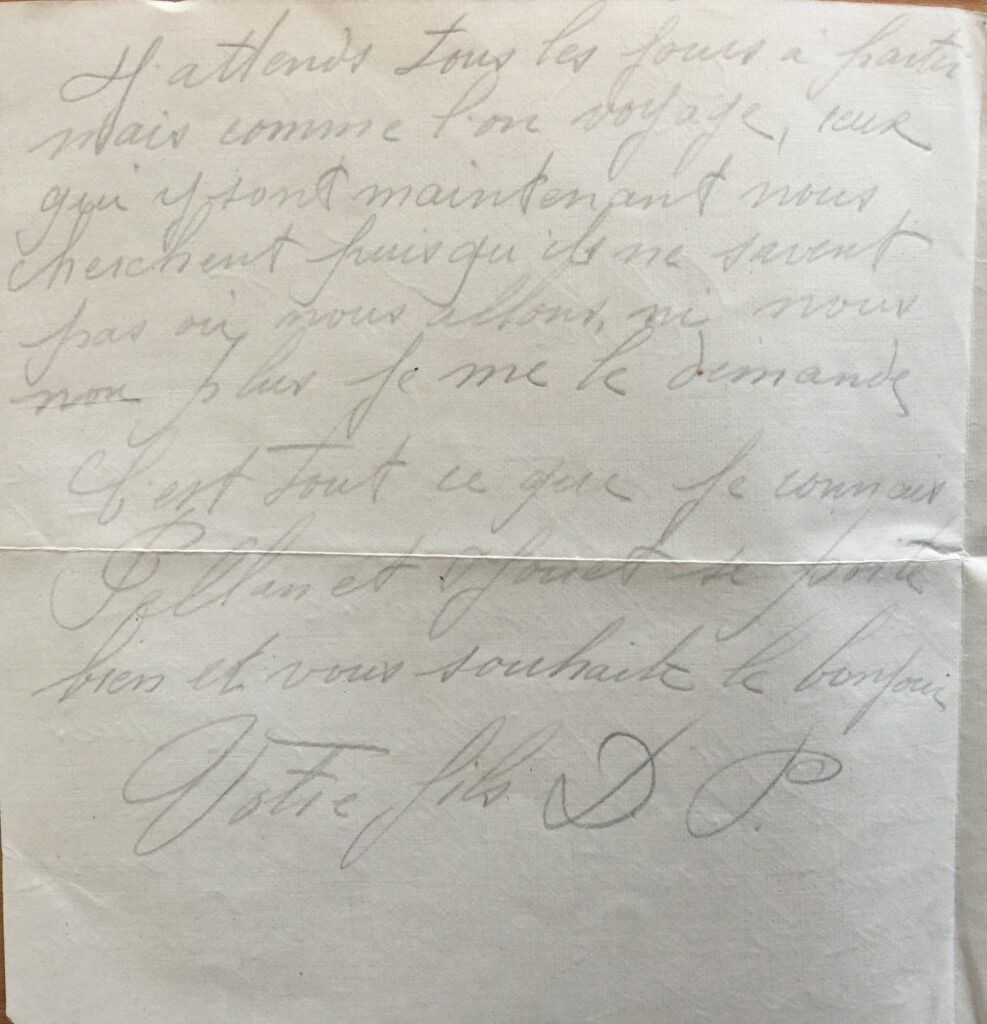 J'attends tous les jours à partir
mais comme l'on voyage, ceux
qui y sont maintenant nous
cherchent puisqu'ils ne savent
pas où nous allons, ni nous
non plus je me le demande
C'est tout ce que je connais
Pellan et se porte
bien et vous souhaite le bonjour
Votre fils D. P.